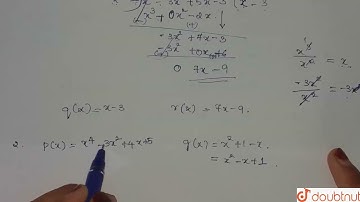 x³ - 3x² + 5x - 3 (x - 3
x³ + 0x² - 2x
(-) (+)
-3x² + 7x - 3
-3x² + 0x + 6
0 7x - 9
x³/x² = x.
-3x²/x² = -3
q(x) = x - 3 r(x) = 7x - 9.
2. p(x) = x⁴ - 3x² + 4x + 5 g(x) = x² + 1 - x
= x² - x + 1.
doubtnut